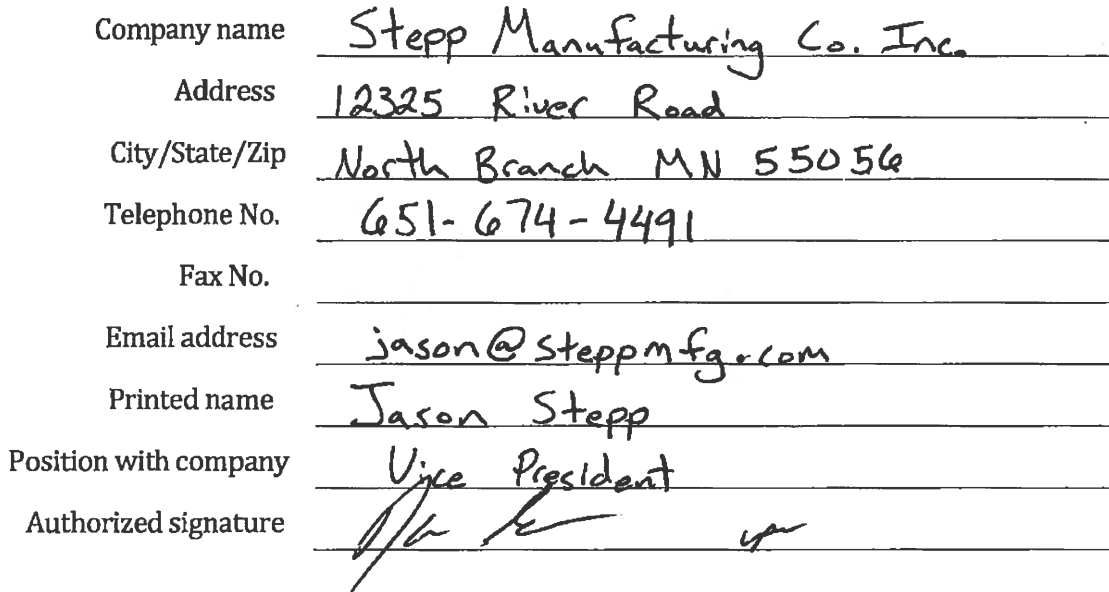 Company name Stepp Manufacturing Co. Inc.
Address 12325 River Road
City/State/Zip North Branch MN 55056
Telephone No. 651-674-4491
Fax No.
Email address jason@steppmfg.com
Printed name Jason Stepp
Position with company Vice President
Authorized signature